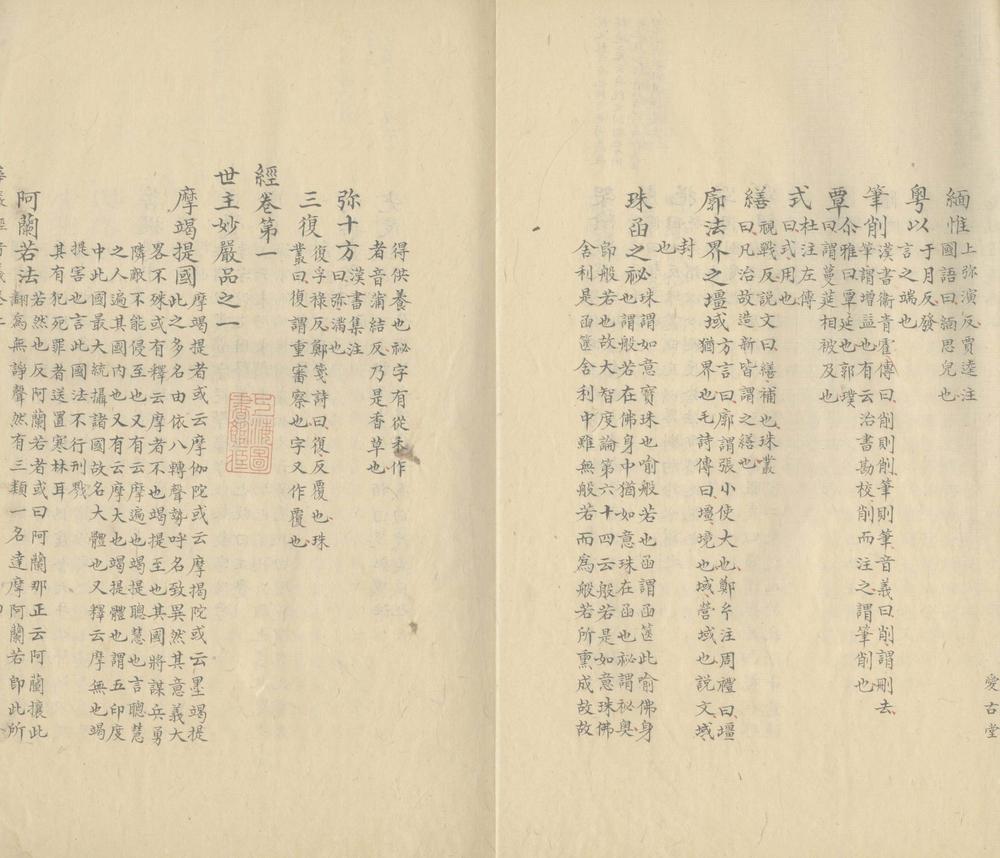 緬惟上弥演反賈逵注
國語曰緬思皃也
粤以于月反發
言之端也
筆削漢書衛青霍傳曰削則削筆則筆音義曰削謂刪去
筆謂增益也有云治書勘校削而注之謂筆削也
覃尒雅曰覃延也郭璞
曰謂蔓莚相被及也
式杜注左傳
曰式用也
繕視戰反説文曰繕補也珠叢
曰凡治故造新皆謂之繕也
廓法界之壃域方言曰廓謂張小使大也鄭𠂎注周禮曰壃
猶界也毛詩傳曰壃境也域營域也説文域
封
也
珠函之祕珠謂如意寶珠也喻般若也函謂函篋此喻佛身
也謂般若在佛身中猶如意珠在函也祕謂祕奥
即般若也故大智度論第六十四云般若是如意珠佛
舍利是函篋舍利中雖無般若而為般若所熏成故故
愛古堂
得供養也祕字有從禾作
者音蒲結反乃是香草也
弥十方漢書集注
曰弥滿也
三復復孚禄反鄭箋詩曰復反覆也珠
叢曰復謂重審察也字又作覆也
經卷第一
世主妙嚴品之一
摩竭提國摩竭提者或云摩伽陀或云摩揭陀或云墨竭提
此之多名由依八轉聲勢呼名致異然其意義大
畧不殊或有釋云摩者不也竭提至也其國將謀兵勇
隣敵不能侵至也又有云摩遍也竭提聰慧也言聰慧
之人遍其國内也又有云摩大也竭提體也謂五印度
中此國最大統攝諸國故名大體也又釋云摩無也竭
提害也言此國法不行刑戮
其有犯死罪者送置寒林耳
阿蘭若法若然也反阿蘭若者或曰阿蘭那正云阿蘭攘此
翻為無諍聲然有三類一名達摩阿蘭若即此所